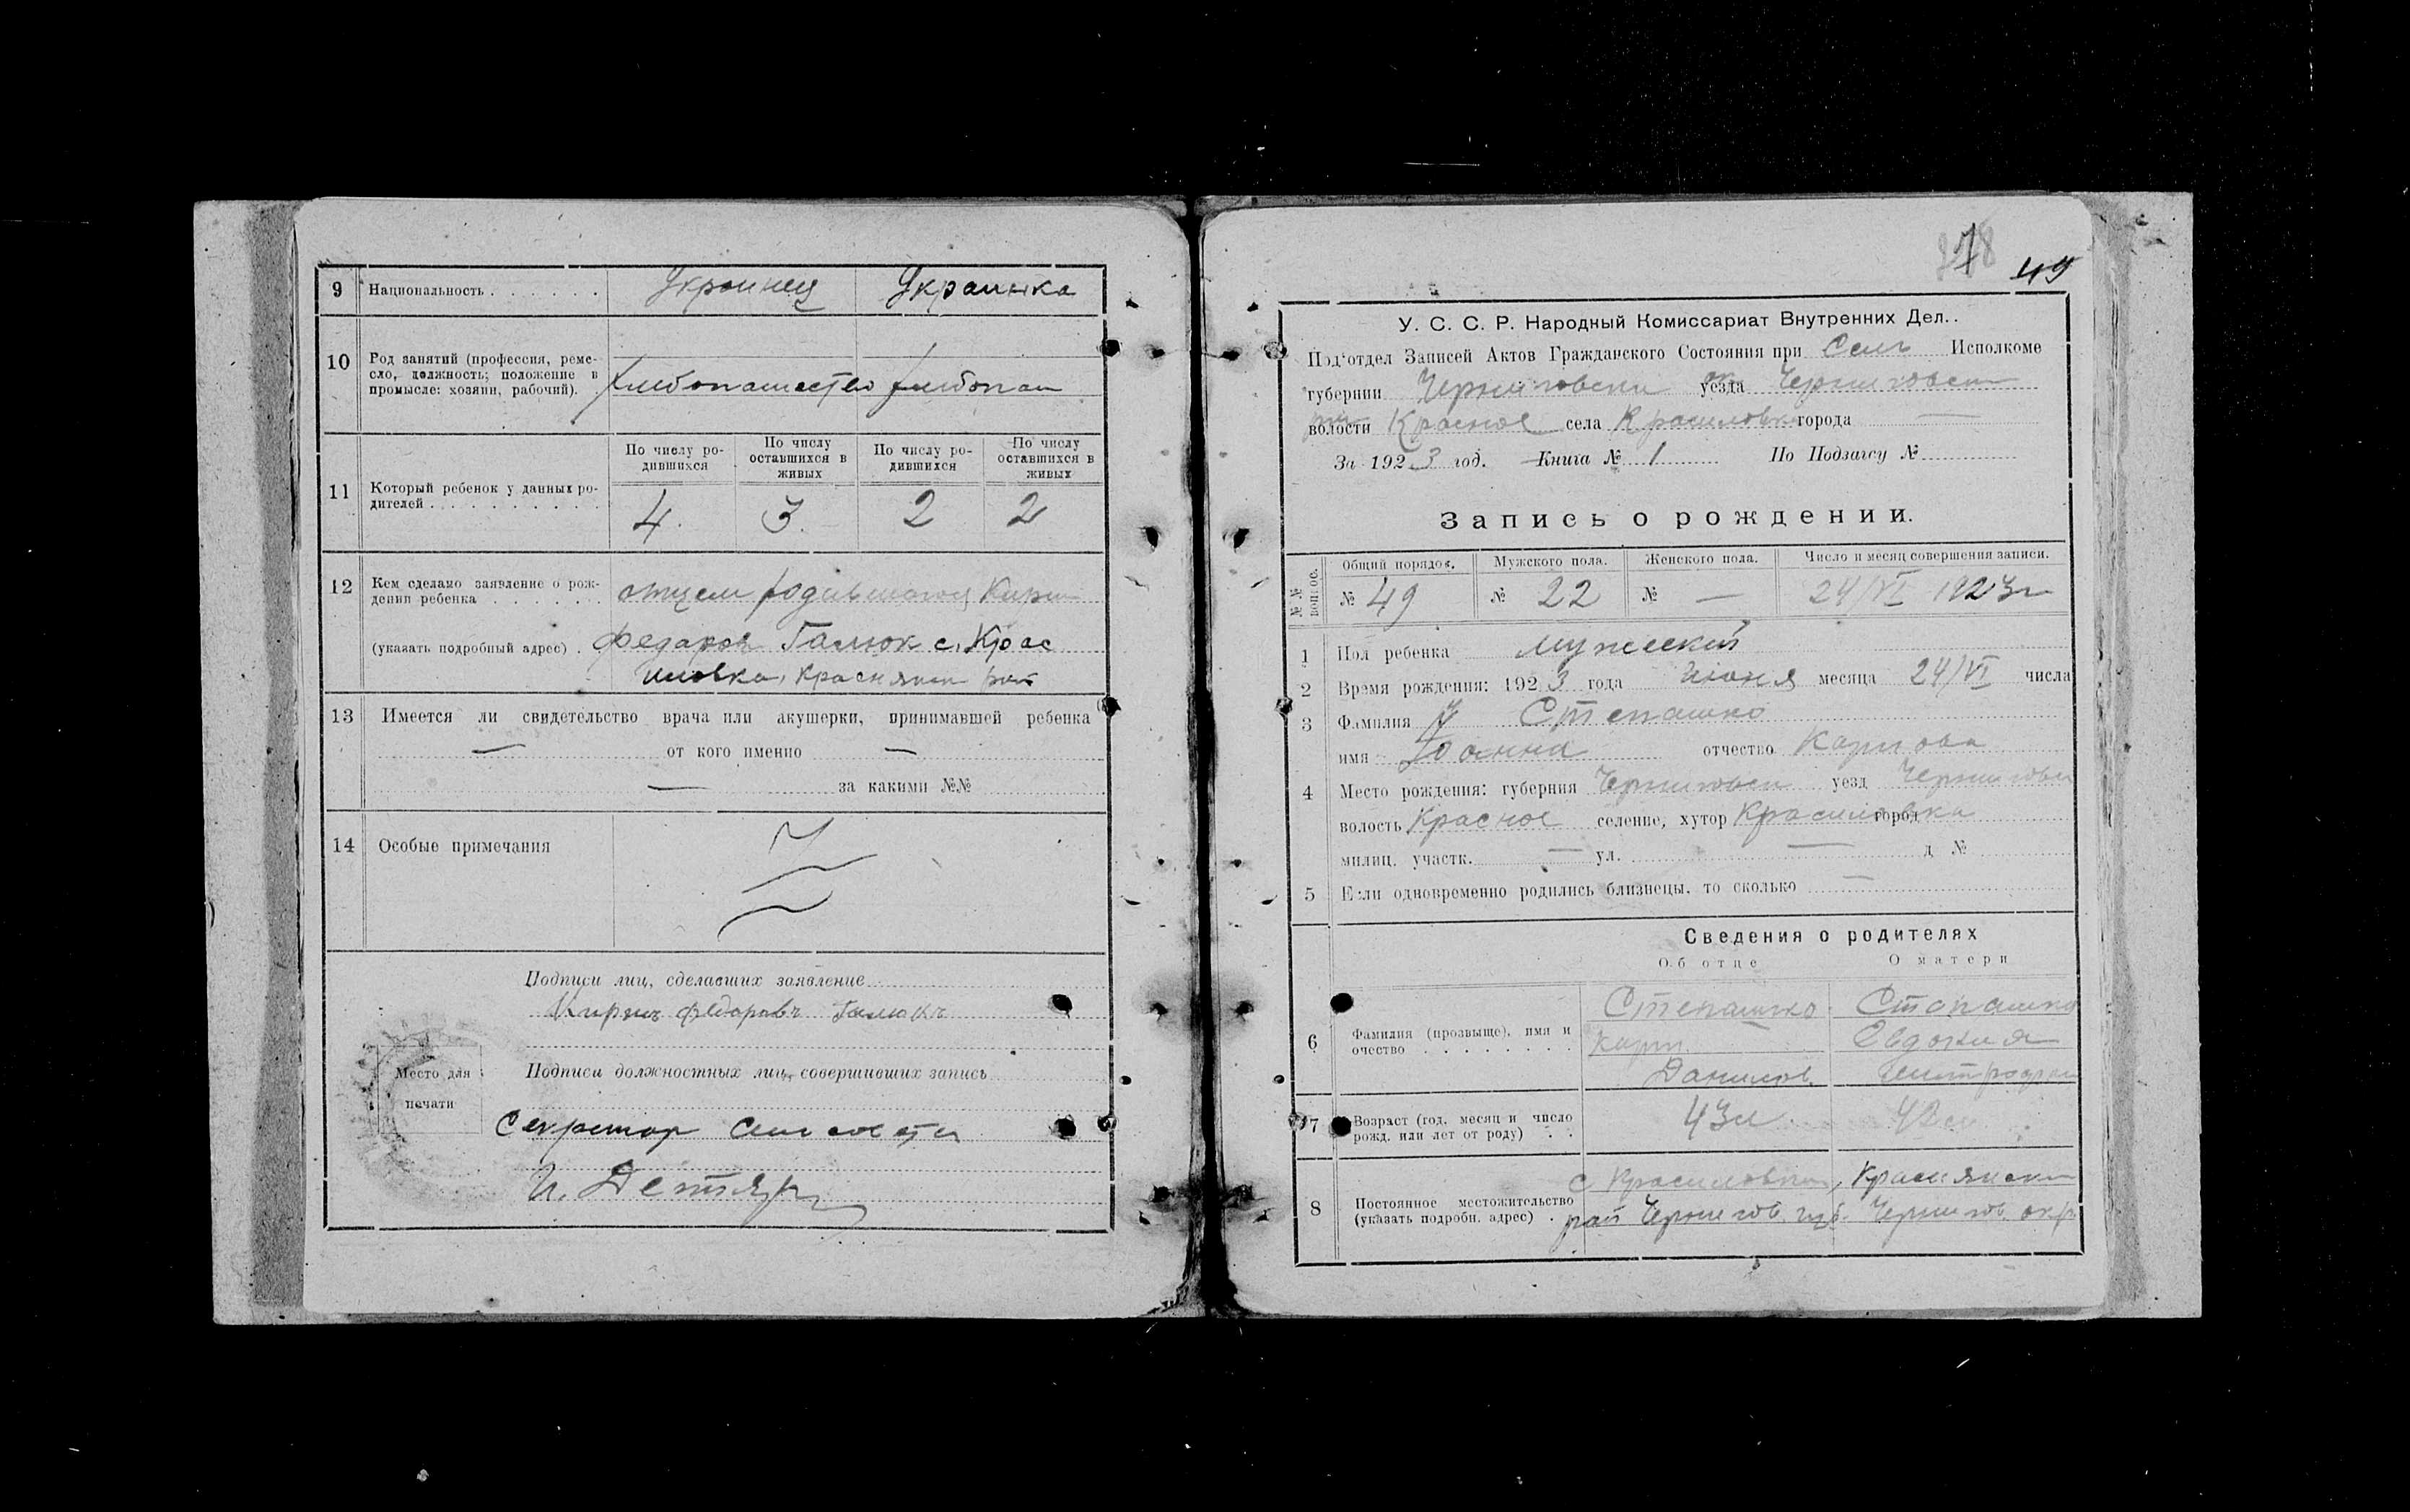 9 Национальность . . . . . . Украинец Украинка
10 Род занятий (профессия, реме-
сло, должность; положение в
промысле: хозяин, рабочий).
хлебопашество хлебопаш
11 Который ребенок у данных ро-
дителей . . . . . . . . . .
По числу ро-
дившихся
По числу
оставшихся в
живых
По числу ро-
дившихся
По числу
оставшихся в
живых
4. 3. 2 2
12 Кем сделано заявление о рож-
дении ребенка . . . . . .
отцем родившагося
(указать подробный адрес) . Галюк с. Крас
иловка, Краснянск
13 Имеется ли свидетельство врача или акушерки, принимавшей ребенка
— от кого именно —
— за какими №№
14 Особые примечания
Подписи лиц, сделавших заявление
Федоровъ Галюкъ
Подписи должностных лиц, совершивших запись
Место для
печати
Секретар
И. Детяр
49
У. С. С. Р. Народный Комиссариат Внутренних Дел..
Под'отдел Записей Актов Гражданского Состояния при Сель Исполкоме
губернии Черниговски уезда Черниговск
волости Красное села Красиловка города —
За 1923 год. Книга № 1 По Подзагсу №
Запись о рождении.
№№ вопрос.
Общий порядок. Мужского пола. Женского пола. Число и месяц совершения записи.
№ 49 № 22 № — 24/VI 1923 г
1 Пол ребенка мужеский
2 Время рождения: 1923 года Июня месяца 24/VI числа
3 Фамилия Степашко
имя отчество Карпова
4 Место рождения: губерния Черниговск уезд Черниговск
волость Красное селение, хутор Красиловка город
милиц. участк. — ул. — д №
5 Если одновременно родились близнецы, то сколько —
Сведения о родителях
Об отце О матери
6 Фамилия (прозвыще), имя и
очество . . . . . . . .
Степашко Степашко
Карп Евдокия
Данилов.
7 Возраст (год, месяц и число
рожд. или лет от роду) . .
43 л
8 Постоянное местожительство
(указать подробн. адрес) .
с Красиловки, Краснянск
рай Чернигов. губ. Чернигов. окр